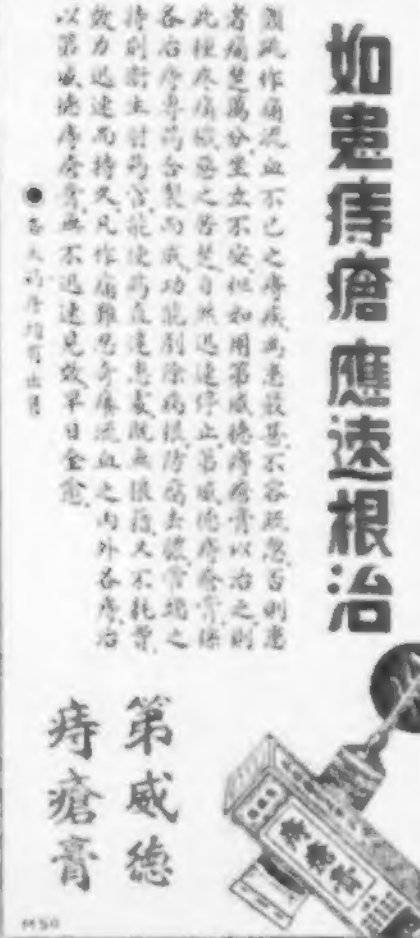 如患痔瘡 應速根治
劇疏作痛流血不已之痔疾為患最甚不容疏忽否則患
者痛楚萬分坐立不安但如用第威德痔瘡膏以治之則
此種疼痛之苦楚自然迅速停止第威德痔瘡膏係
各治痔專藥合製而成功能剷除病根防腐去膿管端之
特別衛生射藥管能使藥直達患處既無痕跡又不耗費
效力迅速而持久凡作痛難忍奇癢流血之內外各痔治
以第威德痔瘡膏無不迅速見效早日全愈
●各大藥房均有出售
第威德
痔瘡膏
痔瘡膏
M50